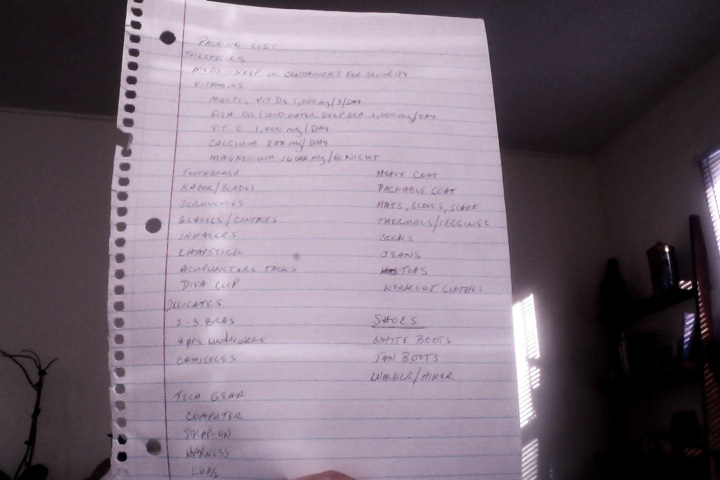 PACKING LIST
TOILETRIES
MEDS - KEEP IN CONTAINERS FOR SECURITY
VITAMINS
MULTI, VIT D3 1,000mg/3/DAY
FISH OIL/COLD WATER DEEP SEA 1,000mg/DAY
VIT C 1,000 mg/DAY
CALCIUM mg/DAY
MAGNESIUM mg/@NIGHT
TOOTHBRUSH
RAZOR/BLADES
SCRUNCHIES
GLASSES/CONTACTS
INHALERS
CHAPSTICK
ACUPUNCTURE TACKS
DIVA CUP
DELICATES
2-3 BRAS
4 prs underwear
CAMISOLES
TECH GEAR
COMPUTER
STRAP-ON
HARNESS
LUBE
HEAVY COAT
PACKABLE COAT
HATS, GLOVES, SCARF
THERMALS/LEGGINGS
SOCKS
JEANS
TOPS
WORKOUT CLOTHES
SHOES
WHITE BOOTS
TAN BOOTS
WALKER/HIKER